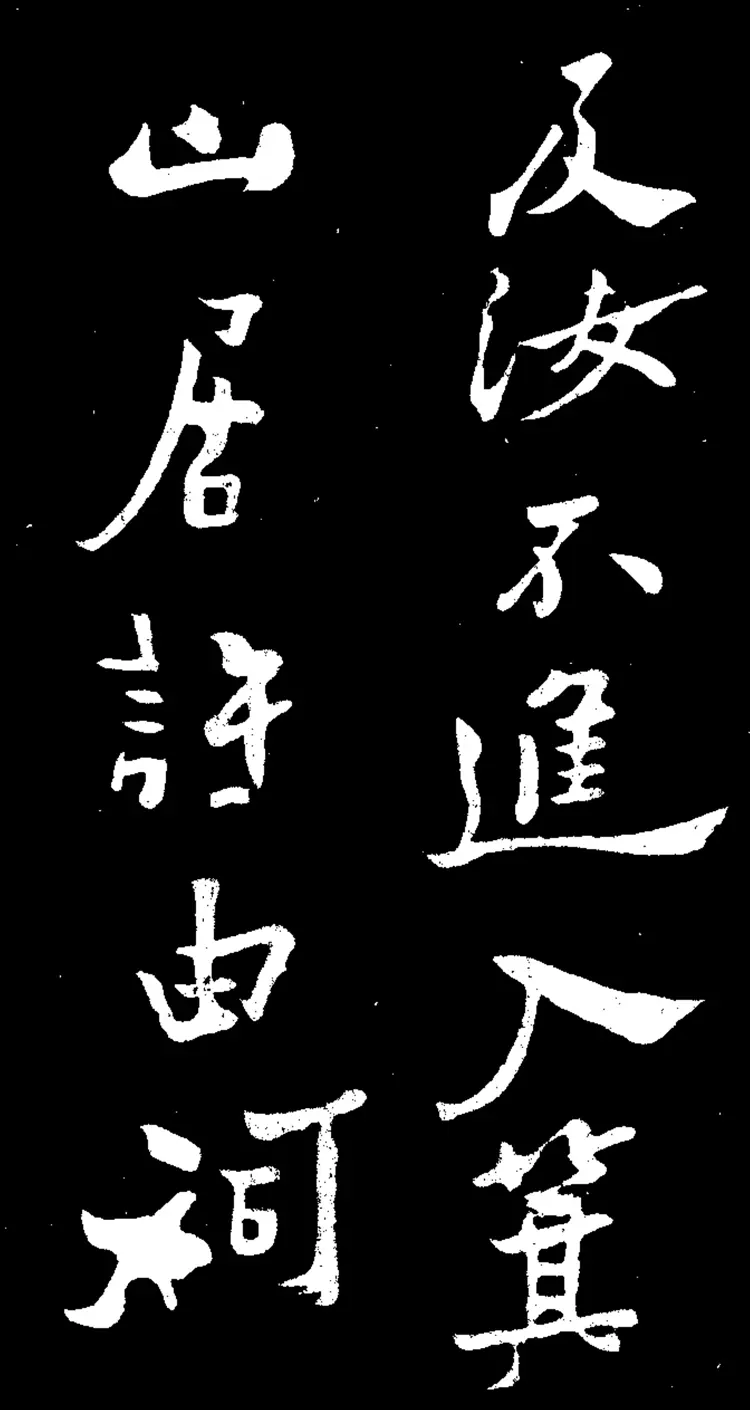 及汝不進入箕
山居許由祠